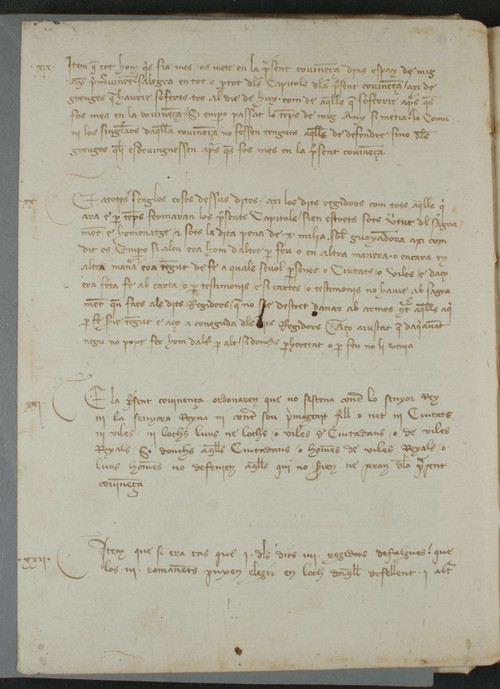 .xix. Item q̃ tot hom q̃s sia mes os mete en la p̃sent covinẽça dins espay de mig
any p̃mervinẽt salegra en tot o ꝑtot dels Capitols dla p̃sent covinẽça axi de
greuges q̃ haurie soferts tro al die de huy com de aq̃lls q̃ soferrie ap̃s q̃s
fos mes en la covinẽça Si empo passat lo tẽps de mig Any si metia lo Comu
ni los singlars daq̃lla covinẽça no fossen tenguts aq̃lls de defendre sino dels
greuges q̃li esdevinguessen ap̃s q̃s fos mes en la p̃sent covinẽça
.xx. E a totes e sengles coses dessus dites axi los dits regidors com tots aq̃lls q̃
ara e ꝑ tẽps fermaran los p̃sents Capitols sien estrets sots v̾tut del sagra
mẽt e homenatge e sots la dita pena de .x. milia sol guoyadora axi com
dit es Empo si alcu era hom daltre ꝑ feu o en altra manera o encara en
altra man̾a era tẽgut de fe a quals sevol ꝑsones o Ciutats o viles e daço
era feta fe ab carta o ꝑ testimonis e si cartes o testimonis no havie ab sagra
mẽt qñ faes als dits Regidors q̃ no sie destret danar ab armes aq̃lls aq̃
ꝑ fe sie tẽgut e aço a coneguda dels dits Regidors E aço aiustat que daq̃avãt
negu no pope fer hom dals ꝑ alt si donchs ꝑ heretat o ꝑ feu no li venia
xxi E la p̃sent covinença ordonaren que no sestena contr̃ lo senyor Rey
ni la senyora Reyna ni contr̃ son p̃mogenit fill o net ni Ciutats
ni viles ni lochs lurs ne lochs o viles d Ciutadans o de viles
Reyals Si donchs aq̃lls Ciutadans o homẽs de viles Reyals o
lurs homẽs no defenien aq̃lls qui no s̾ien ne ꝑan dla p̃sent
covinẽça
.xxii. Item que si era cas que .i. dels dits .iiii. regidors defalgues que
los .iii. romanẽts puxen elegir en loch daq̃ll defellent .i. alt̾